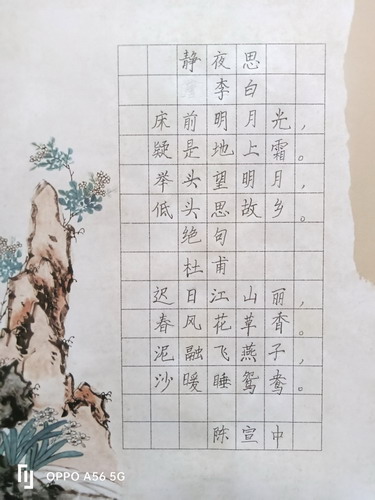 静夜思
李白
床前明月光，
疑是地上霜。
举头望明月，
低头思故乡。
绝句
杜甫
迟日江山丽，
春风花草香。
泥融飞燕子，
沙暖睡鸳鸯。
陈宣中
OPPO A56 5G